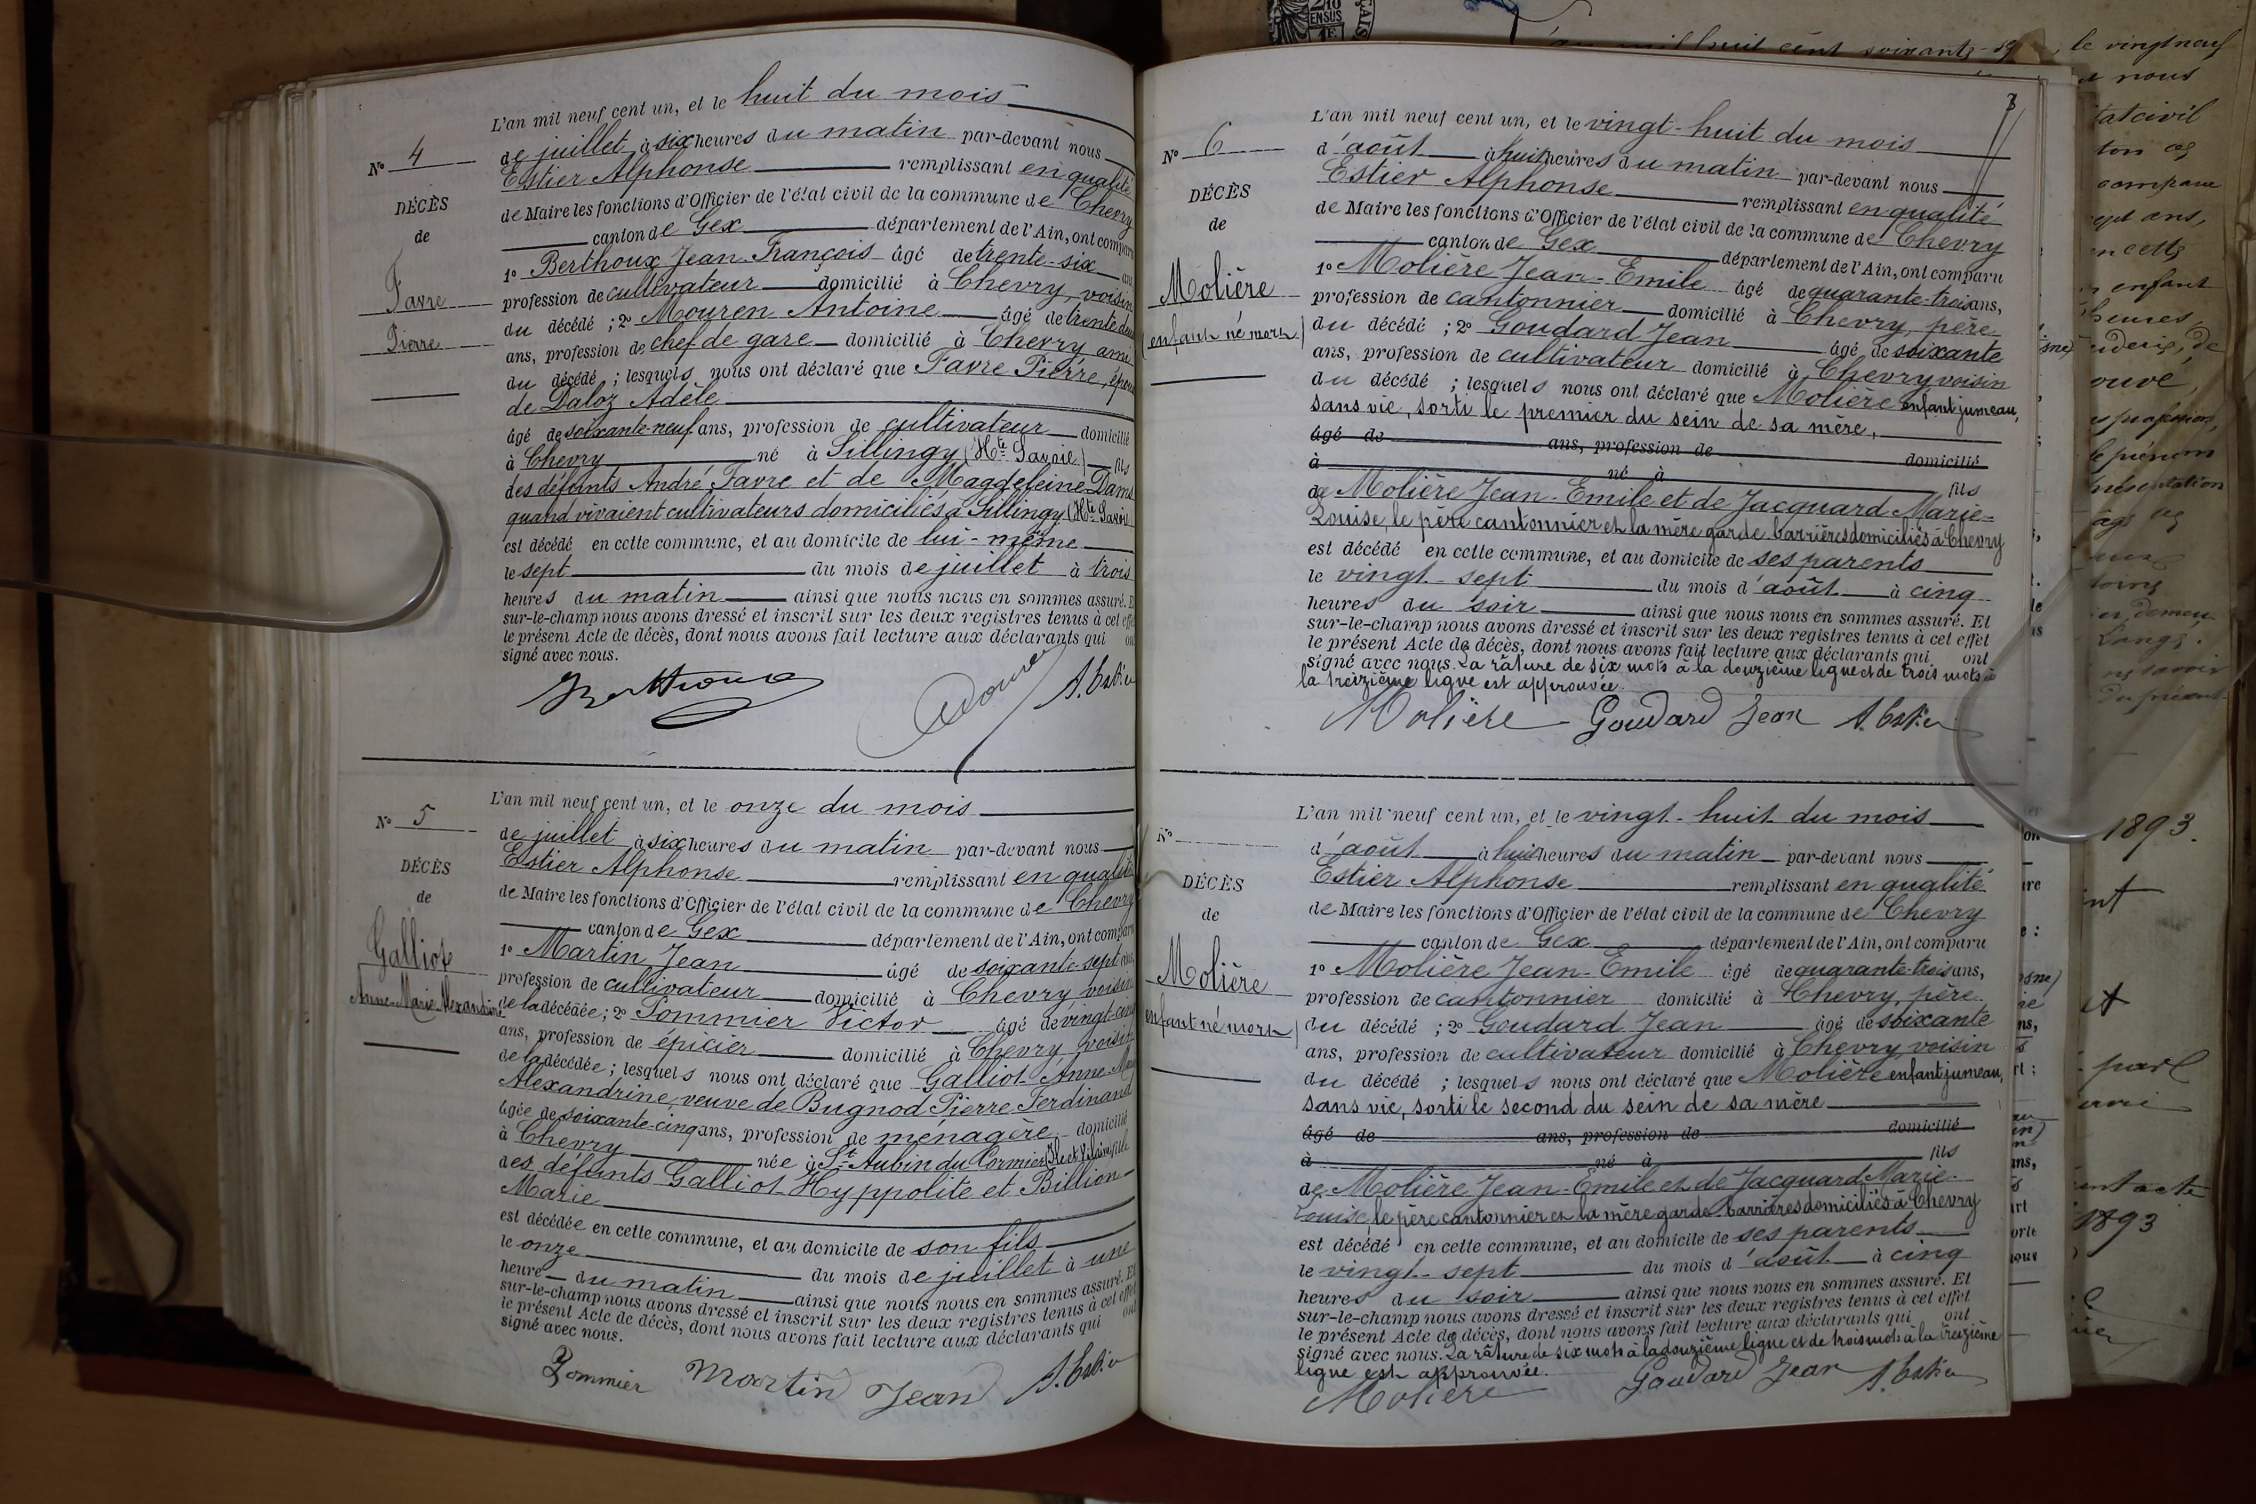 L'an mil neuf cent un, et le huit du mois
No 4
de juillet à six heures du matin par-devant nous
Estier Alphonse remplissant en qualité
DÉCÈS
de Maire les fonctions d'Officier de l'état civil de la commune de Chevry
de
canton de Gex département de l'Ain, ont comparu
1o Berthoux Jean-François âgé de trente-six ans
Favre
profession de cultivateur domicilié à Chevry, voisin
du décédé ; 2o Mouren Antoine âgé de trente deux
Pierre
ans, profession de chef de gare domicilié à Chevry ami
du décédé ; lesquels nous ont déclaré que Favre Pierre, époux
de Daloz Adèle
âgé de soixante-neuf ans, profession de cultivateur domicilié
à Chevry né à Sillingy (Hte Savoie) fils
des défunts André Favre et de Magdeleine Dams
quand vivaient cultivateurs domiciliés à Sillingy (Hte Savoie
est décédé en cette commune, et au domicile de lui-même
le sept du mois de juillet à trois
heures du matin ainsi que nous nous en sommes assuré. Et
sur-le-champ nous avons dressé et inscrit sur les deux registres tenus à cet effet
le présent Acte de décès, dont nous avons fait lecture aux déclarants qui ont
signé avec nous.
Berthoux Mouren A. Estier
L'an mil neuf cent un, et le onze du mois
No 5
de juillet à six heures du matin par-devant nous
Estier Alphonse remplissant en qualité
DÉCÈS
de Maire les fonctions d'Officier de l'état civil de la commune de Chevry
de
canton de Gex département de l'Ain, ont comparu
Galliot
1o Martin Jean âgé de soixante-sept ans
profession de cultivateur domicilié à Chevry voisin
Anne-Marie Alexandrine
de la décédée ; 2o Pommier Victor âgé de vingt-cinq
ans, profession de épicier domicilié à Chevry voisin
de la décédée ; lesquels nous ont déclaré que Galliot Anne-Marie
Alexandrine, veuve de Bugnod Pierre Ferdinand
âgée de soixante-cinq ans, profession de ménagère domicilié
à Chevry née à St Aubin du Cormier (Ile et Vilaine) fille
des défunts Galliot Hyppolite et Billion
Marie
est décédée en cette commune, et au domicile de son fils
le onze du mois de juillet à une
heure du matin ainsi que nous nous en sommes assuré. Et
sur-le-champ nous avons dressé et inscrit sur les deux registres tenus à cet effet
le présent Acte de décès, dont nous avons fait lecture aux déclarants qui ont
signé avec nous.
Pommier Martin Jean A. Estier
L'an mil neuf cent un, et le vingt-huit du mois
No 6
d'août à huit heures du matin par-devant nous
Estier Alphonse remplissant en qualité
DÉCÈS
de Maire les fonctions d'Officier de l'état civil de la commune de Chevry
de
canton de Gex département de l'Ain, ont comparu
Molière
1o Molière Jean-Emile âgé de quarante-trois ans,
profession de cantonnier domicilié à Chevry, père
(enfant né mort)
du décédé ; 2o Goudard Jean âgé de soixante
ans, profession de cultivateur domicilié à Chevry, voisin
du décédé ; lesquels nous ont déclaré que Molière enfant jumeau,
sans vie, sorti le premier du sein de sa mère,
âgé de ans, profession de domicilié
à né à fils
de Molière Jean-Emile et de Jacquard Marie-
Louise, le père cantonnier et la mère garde barrières domiciliés à Chevry
est décédé en cette commune, et au domicile de ses parents
le vingt-sept du mois d'août à cinq
heures du soir ainsi que nous nous en sommes assuré. Et
sur-le-champ nous avons dressé et inscrit sur les deux registres tenus à cet effet
le présent Acte de décès, dont nous avons fait lecture aux déclarants qui ont
signé avec nous. La râture de six mots à la douzième ligne et de trois mots à
la treizième ligne est approuvée.
Molière Goudard Jean A. Estier
L'an mil neuf cent un, et le vingt-huit du mois
No
d'août à huit heures du matin par-devant nous
Estier Alphonse remplissant en qualité
DÉCÈS
de Maire les fonctions d'Officier de l'état civil de la commune de Chevry
de
canton de Gex département de l'Ain, ont comparu
Molière
1o Molière Jean-Emile âgé de quarante-trois ans,
profession de cantonnier domicilié à Chevry, père
enfant né mort)
du décédé ; 2o Goudard Jean âgé de soixante
ans, profession de cultivateur domicilié à Chevry, voisin
du décédé ; lesquels nous ont déclaré que Molière enfant jumeau,
sans vie, sorti le second du sein de sa mère
âgé de ans, profession de domicilié
à né à fils
de Molière Jean-Emile et de Jacquard Marie-
Louise, le père cantonnier et la mère garde barrières domiciliés à Chevry
est décédé en cette commune, et au domicile de ses parents
le vingt-sept du mois d'août à cinq
heures du soir ainsi que nous nous en sommes assuré. Et
sur-le-champ nous avons dressé et inscrit sur les deux registres tenus à cet effet
le présent Acte de décès, dont nous avons fait lecture aux déclarants qui ont
signé avec nous. La râture de six mots à la douzième ligne et de trois mots à la treizième
ligne est approuvée.
Molière Goudard Jean A. Estier
le vingt neuf
nous
1893.
1893